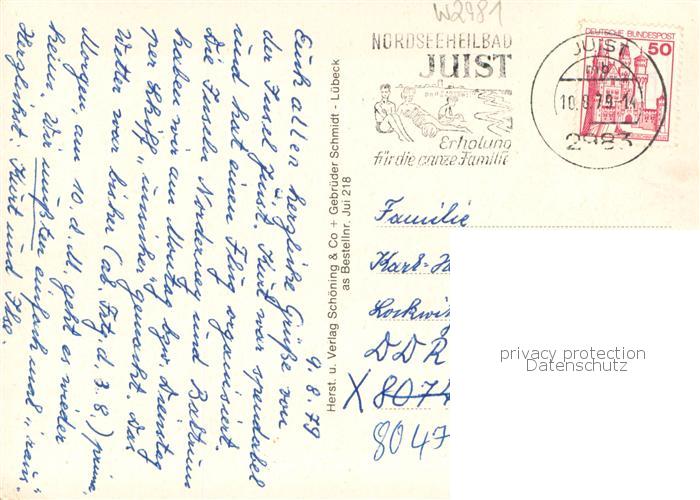 W2981
NORDSEEHEILBAD
JUIST
Erholung
für die ganze Familie
JUIST
mb
10.8.79-14
2983
DEUTSCHE BUNDESPOST
50
9.8.79
Euch allen herzliche Grüße von
der Insel Juist. Kurt war spendabel
und hat einen Flug organisiert.
Die Inseln Norderney und Baltrum
haben wir am Montag bzw. Dienstag
per Schiff "unsicher" gemacht. Das
Wetter war bisher (ab. Frtg. d. 3.8.) prima.
Morgen am 10. d. M. geht es wieder
heim. Wir mußten einfach mal "raus".
Herzlichst: Kurt und Ilse.
Herst. u. Verlag Schöning & Co + Gebrüder Schmidt - Lübeck
as Bestellnr. Jui 218
Familie
Karl-H
Lockwi
DDR
X 8074
8047
privacy protection
Datenschutz